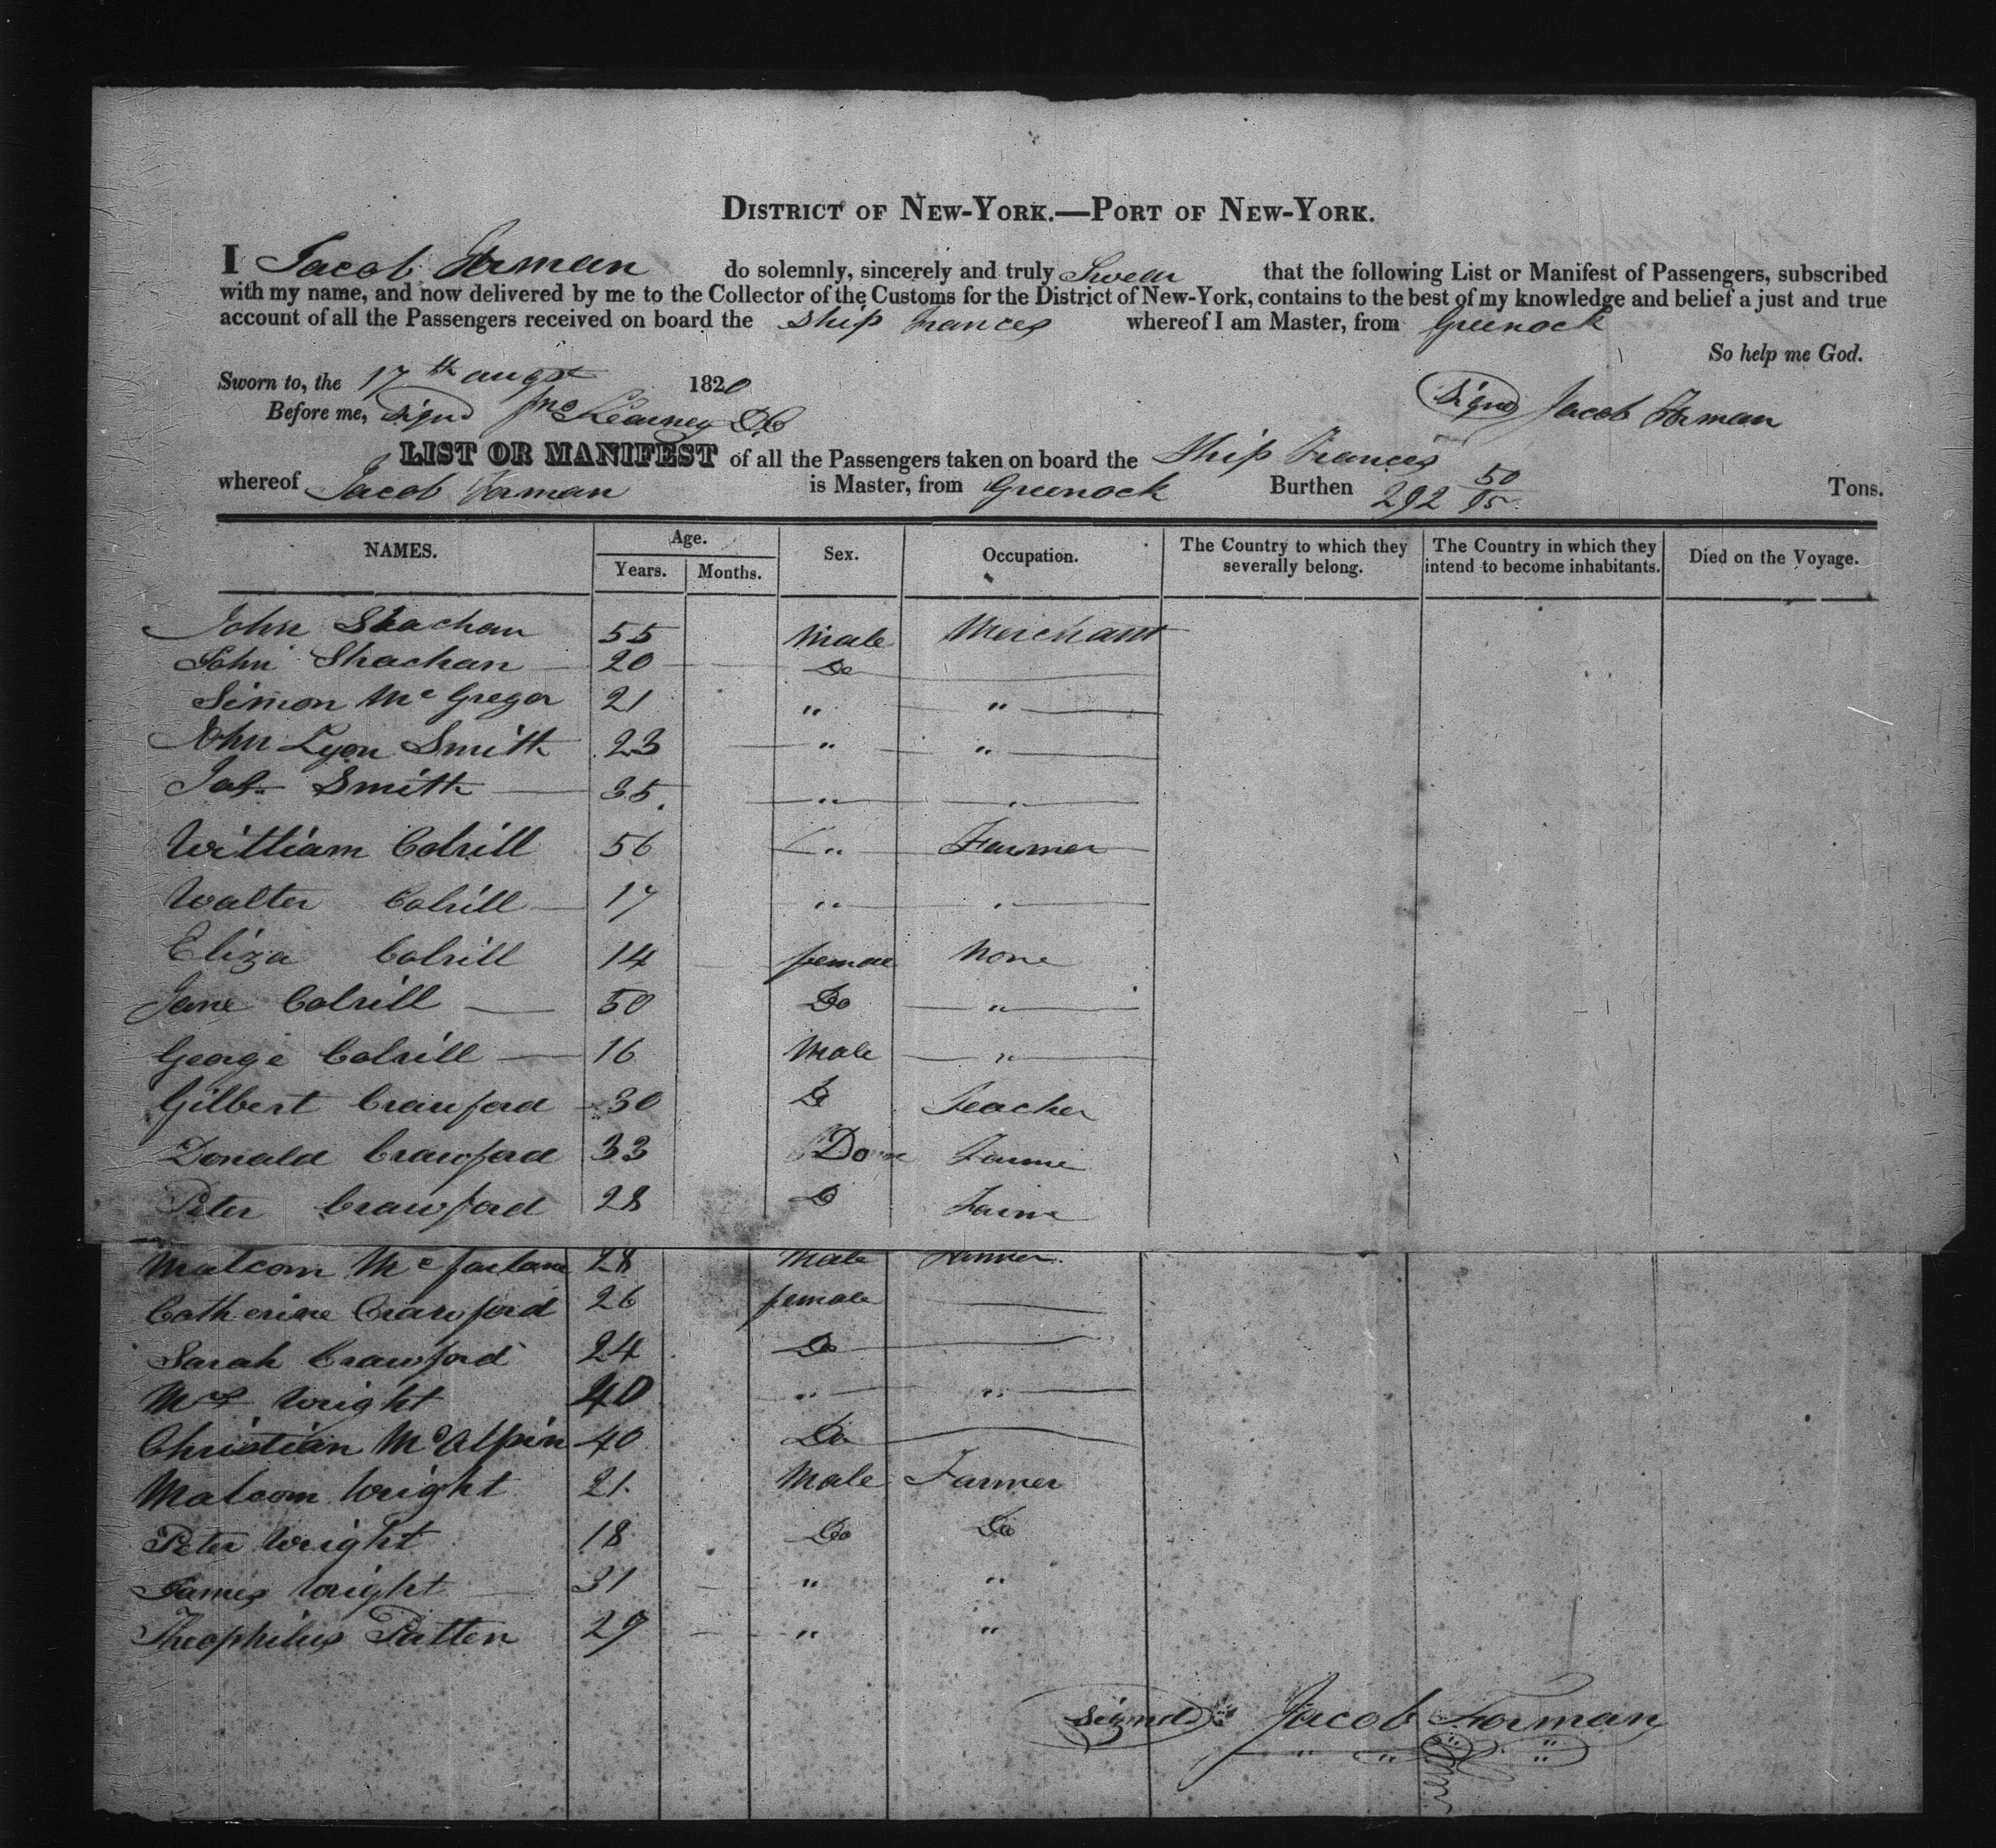 DISTRICT OF NEW-YORK.—PORT OF NEW-YORK.
I Jacob Forman do solemnly, sincerely and truly Swear that the following List or Manifest of Passengers, subscribed
with my name, and now delivered by me to the Collector of the Customs for the District of New-York, contains to the best of my knowledge and belief a just and true
account of all the Passengers received on board the Ship Frances whereof I am Master, from Greenock
So help me God.
Sworn to, the 17th augst 1820
Before me, Signd Jno Kearney DC Signd Jacob Forman
LIST OR MANIFEST of all the Passengers taken on board the Ship Frances
whereof Jacob Forman is Master, from Greenock Burthen 292 50/95 Tons.
NAMES. Age. Years. Months. Sex. Occupation. The Country to which they severally belong. The Country in which they intend to become inhabitants. Died on the Voyage.
John Shachan 55 Male Merchant
John Shachan 20 Do
Simon McGregor 21 " "
John Lyon Smith 23 " "
Jas. Smith 35. " "
William Colrill 56 " Farmer
Walter Colrill 17 " "
Eliza Colrill 14 female None
Jane Colrill 50 Do "
George Colrill 16 Male "
Gilbert Crawford 30 Do Teacher
Donald Crawford 33 Do Farme
Peter Crawford 28 Do Farme
Malcom McFarlane 28 Male Farmer.
Catherine Crawford 26 female
Sarah Crawford 24 Do
Mrs Wright 40 " "
Christian McAlpin 40 Do
Malcom Wright 21. Male Farmer
Peter Wright 18 Do Do
James Wright 31 " "
Theophilus Patten 29 " "
Signd Jacob Forman